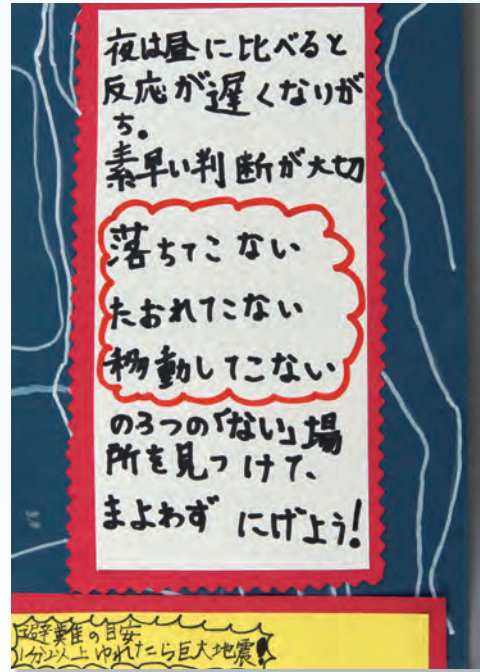 夜は昼に比べると
反応が遅くなりが
ち。
素早い判断が大切
落ちてこない
たおれてこない
移動してこない
の3つの「ない」場
所を見つけて、
まよわず にげよう!
避難の目安
1分以上ゆれたら巨大地震!